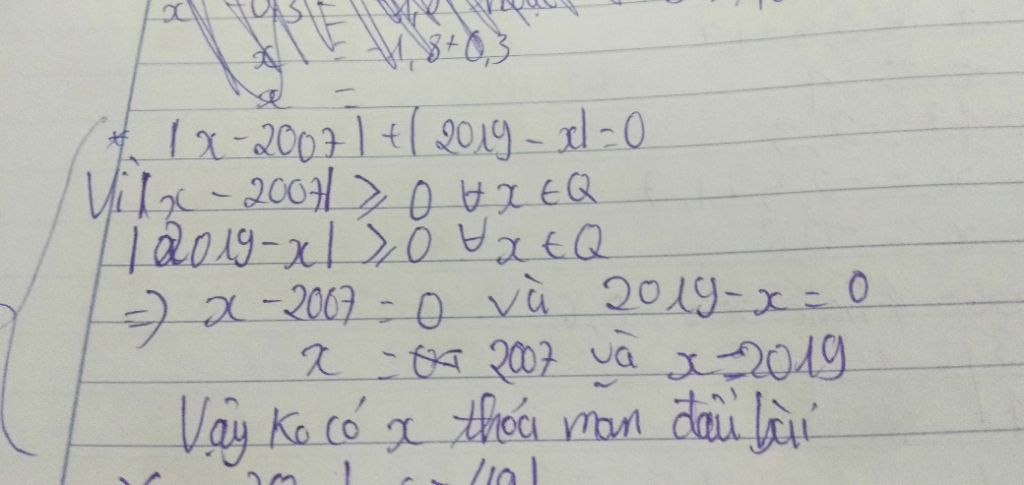 x = -1,8+0,3
x =
*. |x - 2007| + |2019 - x| = 0
Vì |x - 2007| ≥ 0 ∀x ∈ Q
|2019 - x| ≥ 0 ∀x ∈ Q
=> x - 2007 = 0 và 2019 - x = 0
x = 2007 và x = 2019
Vậy ko có x thỏa mãn đầu bài